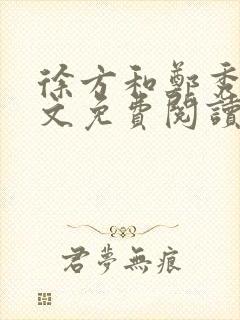 徐方和鄭秀
文免費閱讀
君夢無痕